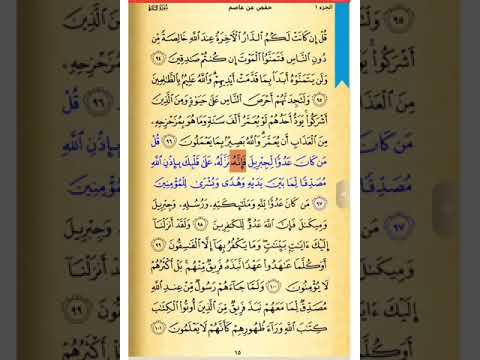 الجزء ١ حفص عن عاصم سورة البقرة
قُلْ إِن كَانَتْ لَكُمُ ٱلدَّارُ ٱلْـَٔاخِرَةُ عِندَ ٱللَّهِ خَالِصَةً مِّن
دُونِ ٱلنَّاسِ فَتَمَنَّوُا۟ ٱلْمَوْتَ إِن كُنتُمْ صَـٰدِقِينَ ٩٤
وَلَن يَتَمَنَّوْهُ أَبَدًۢا بِمَا قَدَّمَتْ أَيْدِيهِمْ وَٱللَّهُ عَلِيمٌۢ بِٱلظَّـٰلِمِينَ
٩٥ وَلَتَجِدَنَّهُمْ أَحْرَصَ ٱلنَّاسِ عَلَىٰ حَيَوٰةٍ وَمِنَ ٱلَّذِينَ
أَشْرَكُوا۟ يَوَدُّ أَحَدُهُمْ لَوْ يُعَمَّرُ أَلْفَ سَنَةٍ وَمَا هُوَ بِمُزَحْزِحِهِۦ
مِنَ ٱلْعَذَابِ أَن يُعَمَّرَ وَٱللَّهُ بَصِيرٌۢ بِمَا يَعْمَلُونَ ٩٦ قُلْ
مَن كَانَ عَدُوًّا لِّجِبْرِيلَ فَإِنَّهُۥ نَزَّلَهُۥ عَلَىٰ قَلْبِكَ بِإِذْنِ ٱللَّهِ
مُصَدِّقًا لِّمَا بَيْنَ يَدَيْهِ وَهُدًى وَبُشْرَىٰ لِلْمُؤْمِنِينَ
٩٧ مَن كَانَ عَدُوًّا لِّلَّهِ وَمَلَـٰٓئِكَتِهِۦ وَرُسُلِهِۦ وَجِبْرِيلَ
وَمِيكَىٰلَ فَإِنَّ ٱللَّهَ عَدُوٌّ لِّلْكَـٰفِرِينَ ٩٨ وَلَقَدْ أَنزَلْنَآ
إِلَيْكَ ءَايَـٰتٍۭ بَيِّنَـٰتٍ وَمَا يَكْفُرُ بِهَآ إِلَّا ٱلْفَـٰسِقُونَ ٩٩
أَوَكُلَّمَا عَـٰهَدُوا۟ عَهْدًا نَّبَذَهُۥ فَرِيقٌ مِّنْهُم بَلْ أَكْثَرُهُمْ
لَا يُؤْمِنُونَ ١٠٠ وَلَمَّا جَآءَهُمْ رَسُولٌ مِّنْ عِندِ ٱللَّهِ
مُصَدِّقٌ لِّمَا مَعَهُمْ نَبَذَ فَرِيقٌ مِّنَ ٱلَّذِينَ أُوتُوا۟ ٱلْكِتَـٰبَ
كِتَـٰبَ ٱللَّهِ وَرَآءَ ظُهُورِهِمْ كَأَنَّهُمْ لَا يَعْلَمُونَ ١٠١
١٥